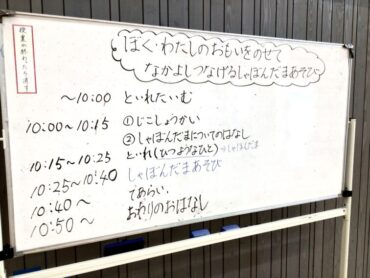 授業が終わったら消す
ぼく・わたしのおもいをのせて
なかよしつなげるしゃぼんだまあそび
～10:00 といれたいむ
10:00～10:15 ①じこしょうかい
②しゃぼんだまについてのはなし
10:15～10:25 といれ(ひつようなひと)→しゃぼんだま
10:25～10:40 しゃぼんだまあそび
10:40～ てあらい、
10:50～ おわりのおはなし